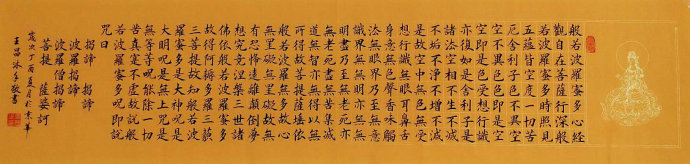 般若波羅蜜多心經
觀自在菩薩行深般
若波羅蜜多時照見
五蘊皆空度一切苦
厄舍利子色不異空
空不異色色即是空
空即是色受想行識
亦復如是舍利子是
諸法空相不生不滅
不垢不淨不增不減
是故空中無色無受
想行識無眼耳鼻舌
身意無色聲香味觸
法無眼界乃至無意
識界無無明亦無無
明盡乃至無老死亦
無老死盡無苦集滅
道無智亦無得以無
所得故菩提薩埵依
般若波羅蜜多故心
無罣礙無罣礙故無
有恐怖遠離顛倒夢
想究竟涅槃三世諸
佛依般若波羅蜜多
故得阿耨多羅三藐
三菩提故知般若波
羅蜜多是大神呪是
大明呪是無上呪是
無等等呪能除一切
苦真實不虛故說般
若波羅蜜多呪即說
呪曰
揭諦 揭諦
波羅揭諦
波羅僧揭諦
菩提 薩婆訶
歲次丁酉夏月於京華
沐手敬書